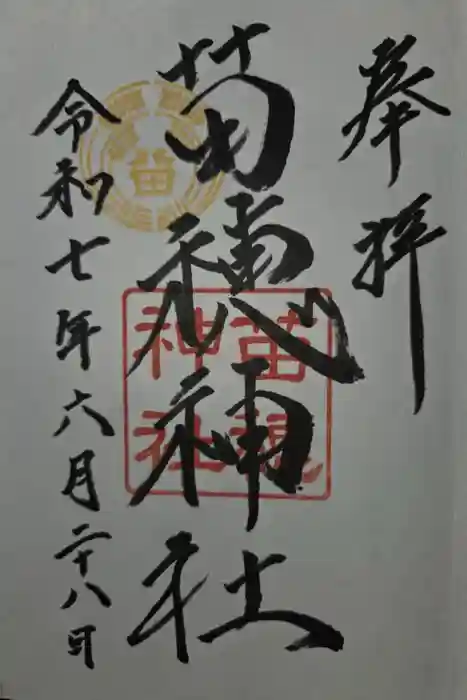 奉拝
苗穂神社
令和七年六月二十八日
苗穂
神社
苗